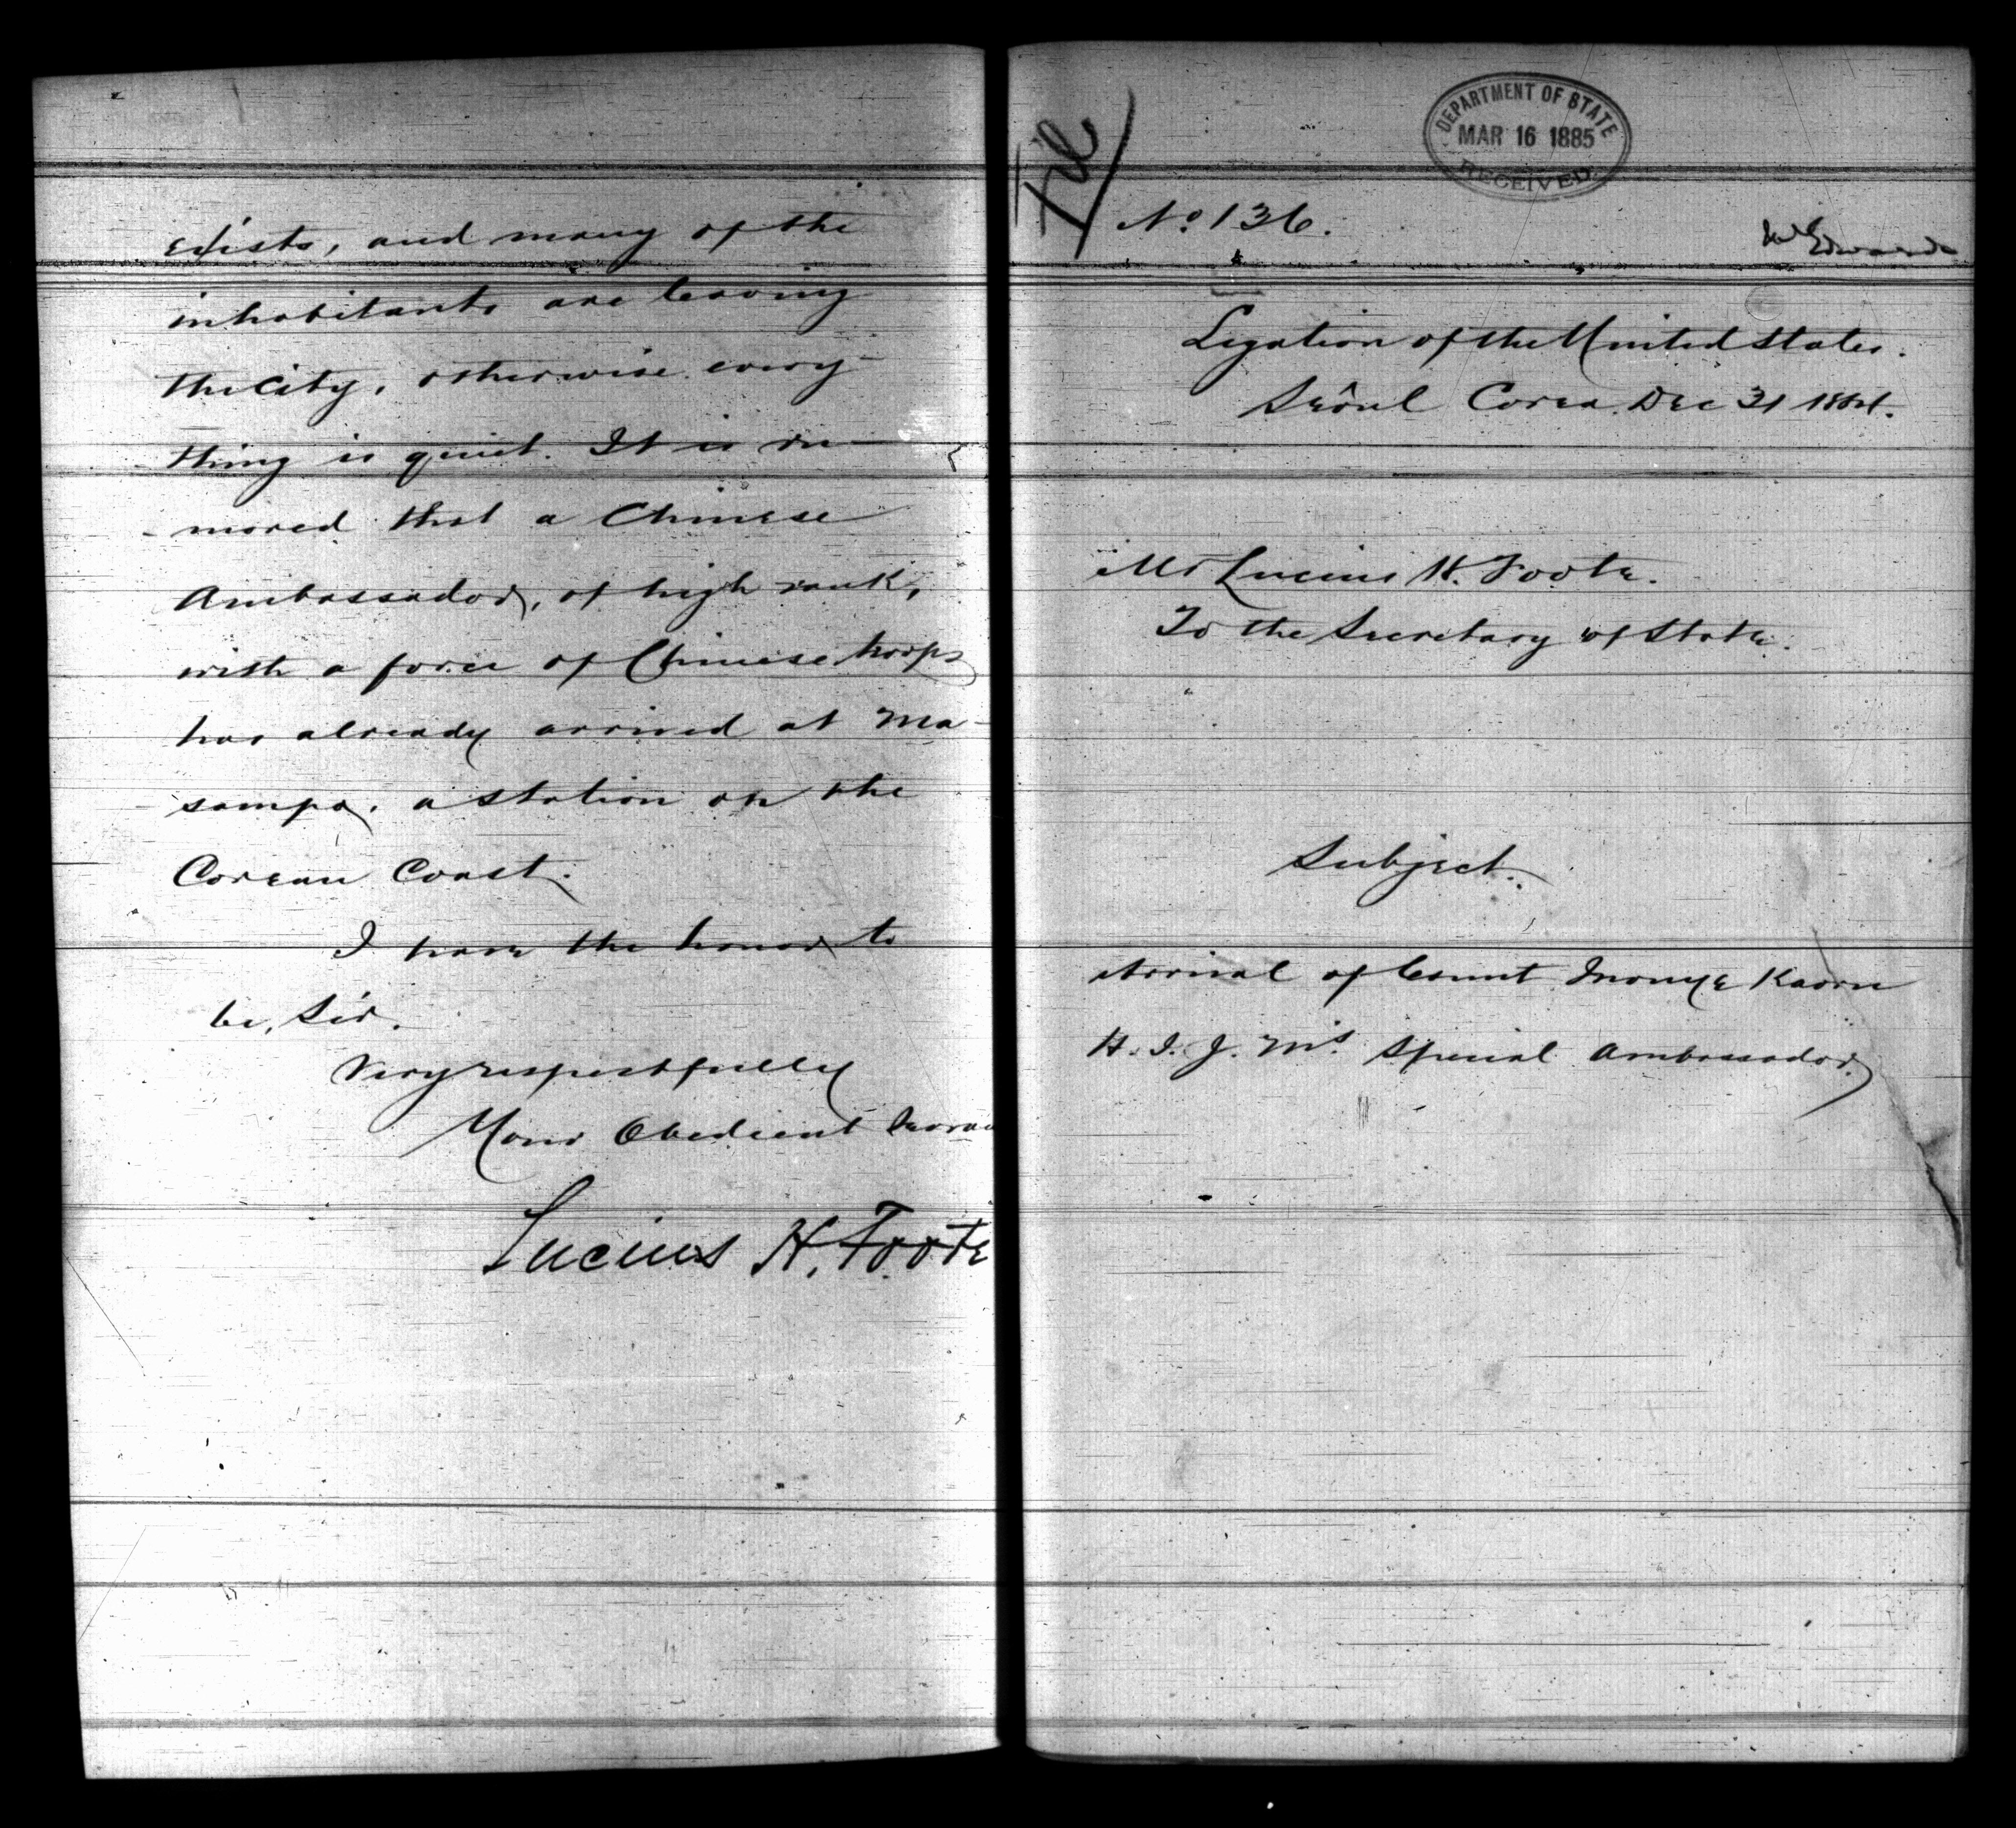 exists, and many of the
inhabitants are leaving
the City, otherwise every
thing is quiet. It is ru-
mored that a Chinese
Ambassador, of high rank,
with a force of Chinese troops
has already arrived at Ma-
sampo, a station on the
Corean Coast.
I have the honor to
be, Sir,
Very respectfully
Your Obedient
Lucius H. Foote
File
DEPARTMENT OF STATE
MAR 16 1885
RECEIVED
No 136.
Edwards
Legation of the United States.
Seôul Corea. Dec 31 1884.
Mr Lucius H. Foote.
To the Secretary of State.
Subject.
Arrival of Count Inouye Kaoru
H. I. J. M's. Special Ambassador.